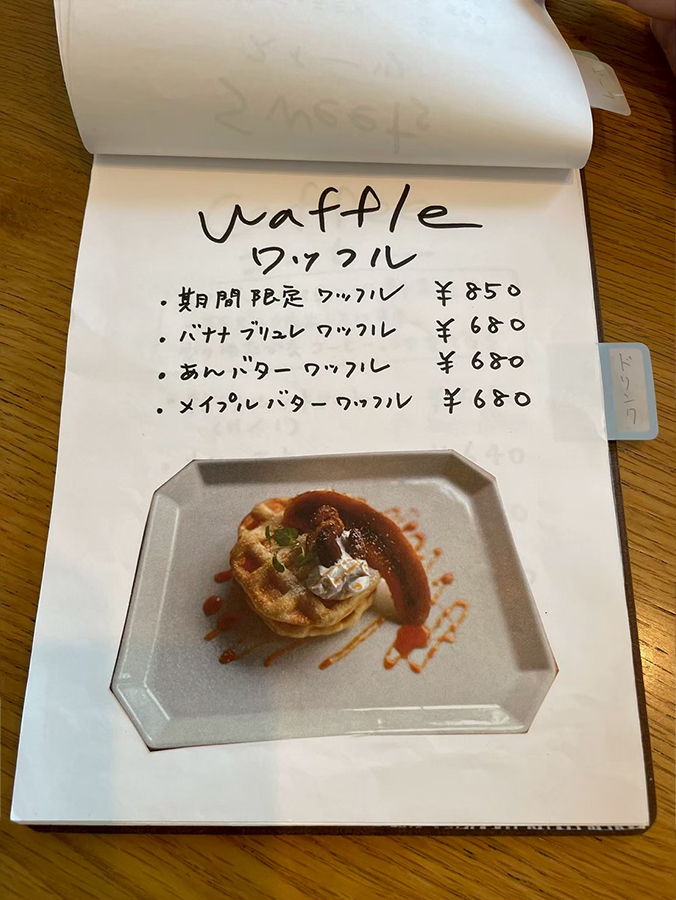 Waffle
ワッフル
・期間限定 ワッフル ¥850
・バナナブリュレ ワッフル ¥680
・あんバター ワッフル ¥680
・メイプルバターワッフル ¥680
ドリンク